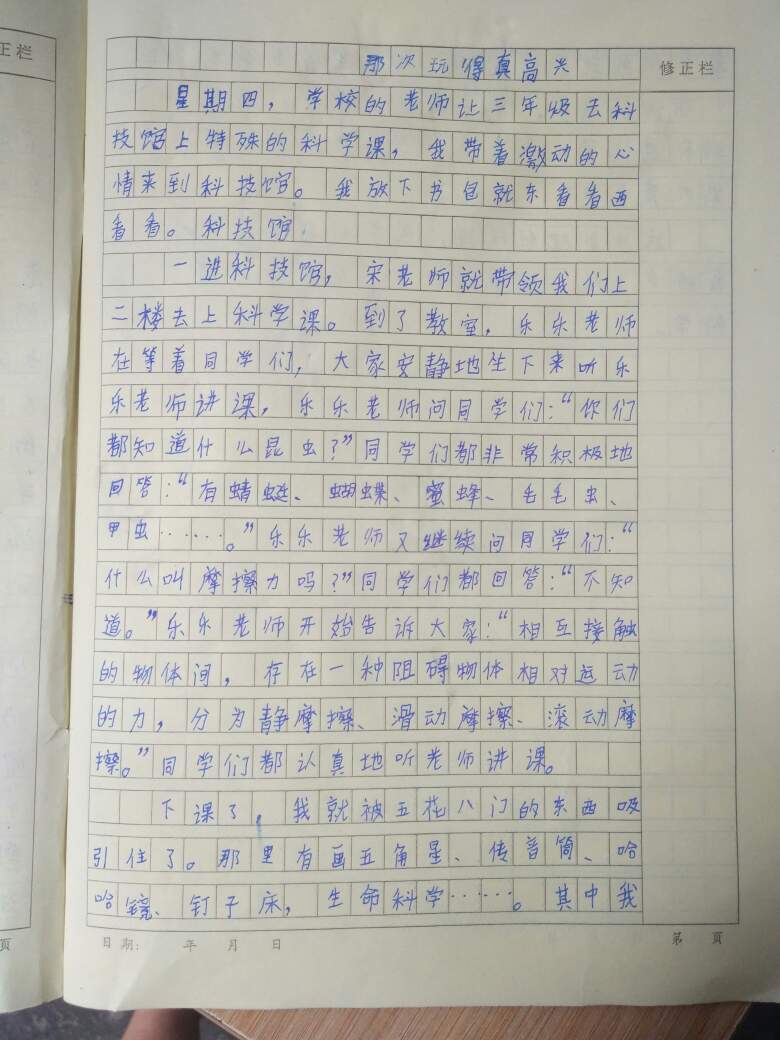 正栏
那次玩得真高兴
修正栏
星期四，学校的老师让三年级去科
技馆上特殊的科学课，我带着激动的心
情来到科技馆。我放下书包就东看看西
看看。科技馆
一进科技馆，宋老师就带领我们上
二楼去上科学课。到了教室，乐乐老师
在等着同学们，大家安静地坐下来听乐
乐老师讲课，乐乐老师问同学们：“你们
都知道什么昆虫？”同学们都非常积极地
回答：“有蜻蜓、蝴蝶、蜜蜂、毛毛虫、
甲虫……。”乐乐老师又继续问同学们：“
什么叫摩擦力吗？”同学们都回答：“不知
道。”乐乐老师开始告诉大家：“相互接触
的物体间，存在一种阻碍物体相对运动
的力，分为静摩擦、滑动摩擦、滚动摩
擦。”同学们都认真地听老师讲课。
下课了，我就被五花八门的东西吸
引住了。那里有画五角星、传音筒、哈
哈镜、钉子床，生命科学……。其中我
页
日期： 年 月 日
第 页